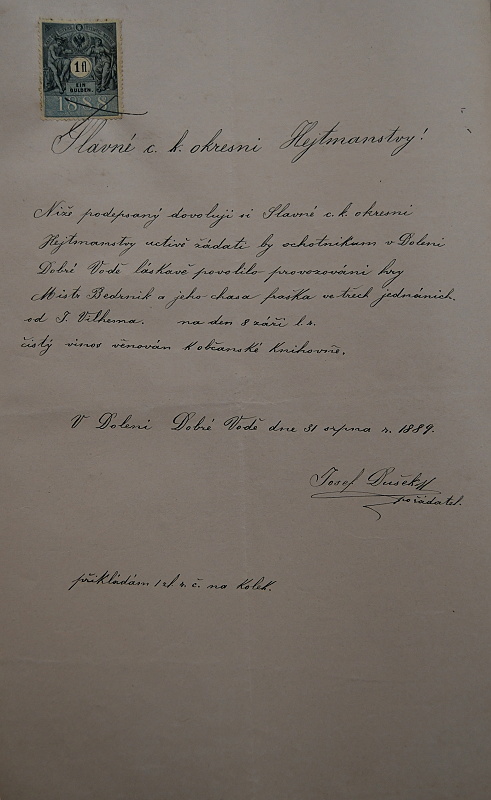 1 fl
EIN
GULDEN.
1888
Slavné c. k. okresni Hejtmanstvy!
Níže podepsaný dovoluji si Slavné c. k. okresni
Hejtmanstvy uctivě žádati by ochotnikum v Doleni
Dobré Vodě láskavě povolilo provozováni hry
Mistr Bedrnik a jeho chasa fraška ve třech jednáních.
od J. Vilhema. na den 8 září l. r.
čistý vinos věnován k občanské Knihovně.
V Doleni Dobré Vodě dne 31 srpna r. 1889.
Josef Dušek
pořádatel.
přikládám 1 zl r. č. na Kolek.